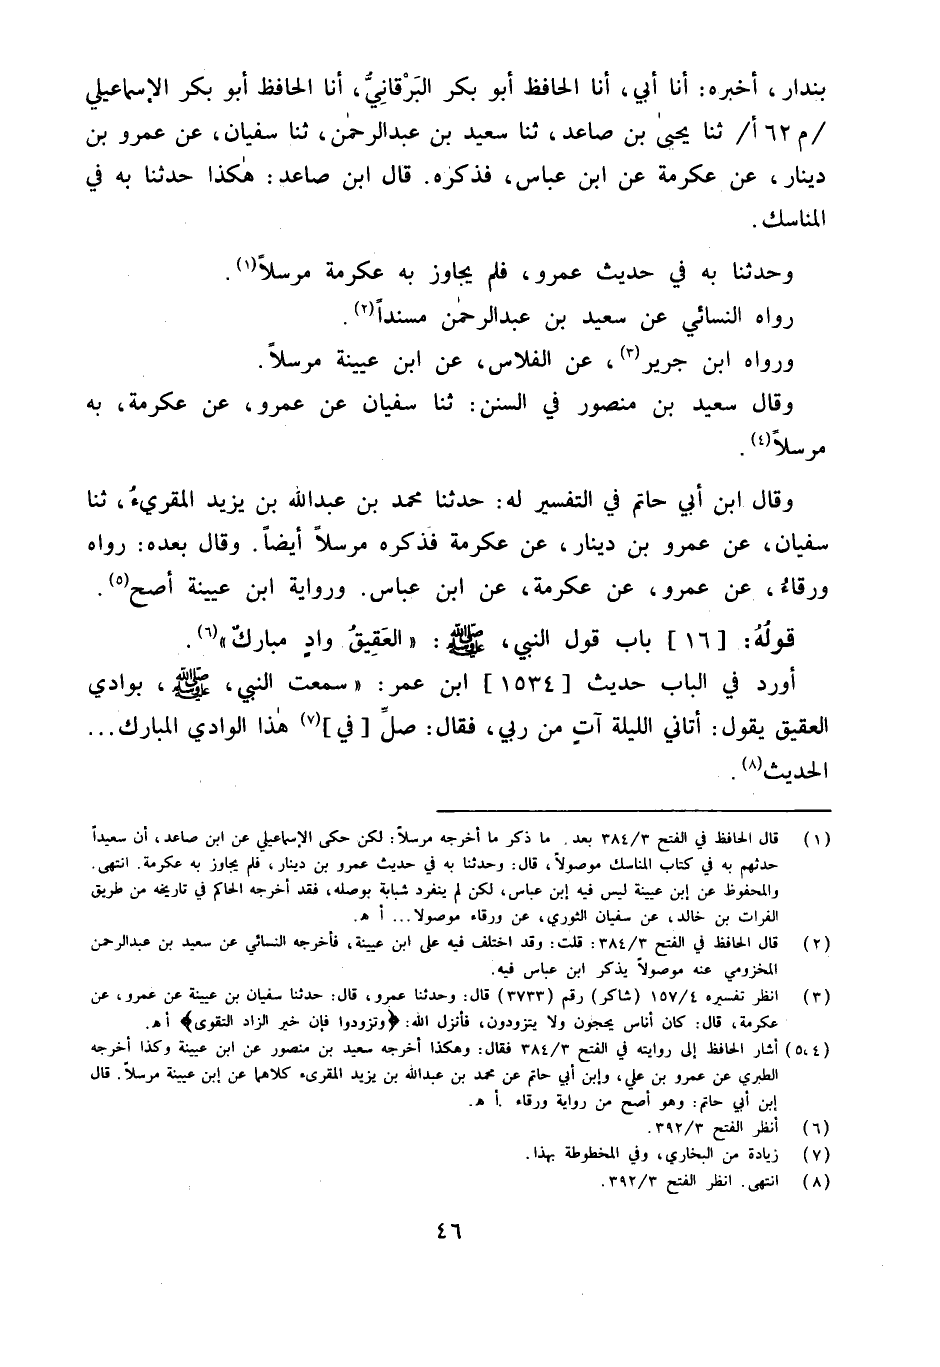 بندار، أخبره: أنا أبي، أنا الحافظ أبو بكر البَرْقانيُّ، أنا الحافظ أبو بكر الإسماعيلي
/م ٦٢ أ/ ثنا يحيىٰ بن صاعد، ثنا سعيد بن عبدالرحمٰن، ثنا سفيان، عن عمرو بن
دينار، عن عكرمة عن ابن عباس، فذكره. قال ابن صاعد: هٰكذا حدثنا به في
المناسك.
وحدثنا به في حديث عمرو، فلم يجاوز به عكرمة مرسلاً(١).
رواه النسائي عن سعيد بن عبدالرحمٰن مسنداً(٢).
ورواه ابن جرير(٣)، عن الفلاس، عن ابن عيينة مرسلاً.
وقال سعيد بن منصور في السنن: ثنا سفيان عن عمرو، عن عكرمة، به
مرسلاً(٤).
وقال ابن أبي حاتم في التفسير له: حدثنا محمد بن عبدالله بن يزيد المقريءُ، ثنا
سفيان، عن عمرو بن دينار، عن عكرمة فذكره مرسلاً أيضاً. وقال بعده: رواه
ورقاءُ، عن عمرو، عن عكرمة، عن ابن عباس. ورواية ابن عيينة أصح(٥).
قولُهُ: [١٦] باب قول النبي، ﷺ: «العَقِيقُ وادٍ مباركٌ»(٦).
أورد في الباب حديث [١٥٣٤] ابن عمر: «سمعت النبي، ﷺ، بوادي
العقيق يقول: أتاني الليلة آتٍ من ربي، فقال: صلِّ [في](٧) هٰذا الوادي المبارك...
الحديث(٨).
(١) قال الحافظ في الفتح ٣٨٤/٣ بعد. ما ذكر ما أخرجه مرسلاً: لكن حكى الإسماعيلي عن ابن صاعد، أن سعيداً
حدثهم به في كتاب المناسك موصولاً، قال: وحدثنا به في حديث عمرو بن دينار، فلم يجاوز به عكرمة. انتهى.
والمحفوظ عن إبن عيينة ليس فيه إبن عباس، لكن لم ينفرد شبابة بوصله، فقد أخرجه الحاكم في تاريخه من طريق
الفرات بن خالد، عن سفيان الثوري، عن ورقاء موصولا... أ هـ.
(٢) قال الحافظ في الفتح ٣٨٤/٣: قلت: وقد اختلف فيه على ابن عيينة، فأخرجه النسائي عن سعيد بن عبدالرحمن
المخزومي عنه موصولاً يذكر ابن عباس فيه.
(٣) انظر تفسيره ١٥٧/٤ (شاكر) رقم (٣٧٣٣) قال: وحدثنا عمرو، قال: حدثنا سفيان بن عيينة عن عمرو، عن
عكرمة، قال: كان أناس يحجون ولا يتزودون، فأنزل الله: ﴿وتزودوا فإن خير الزاد التقوى﴾ أ هـ.
(٥،٤) أشار الحافظ إلى روايته في الفتح ٣٨٤/٣ فقال: وهكذا أخرجه سعيد بن منصور عن ابن عيينة وكذا أخرجه
الطبري عن عمرو بن علي، وإبن أبي حاتم عن محمد بن عبدالله بن يزيد المقرىء كلاهما عن إبن عيينة مرسلاً. قال
إبن أبي حاتم: وهو أصح من رواية ورقاء .أ هـ.
(٦) أنظر الفتح ٣٩٢/٣.
(٧) زيادة من البخاري، وفي المخطوطة بهذا.
(٨) انتهى. انظر الفتح ٣٩٢/٣.
٤٦